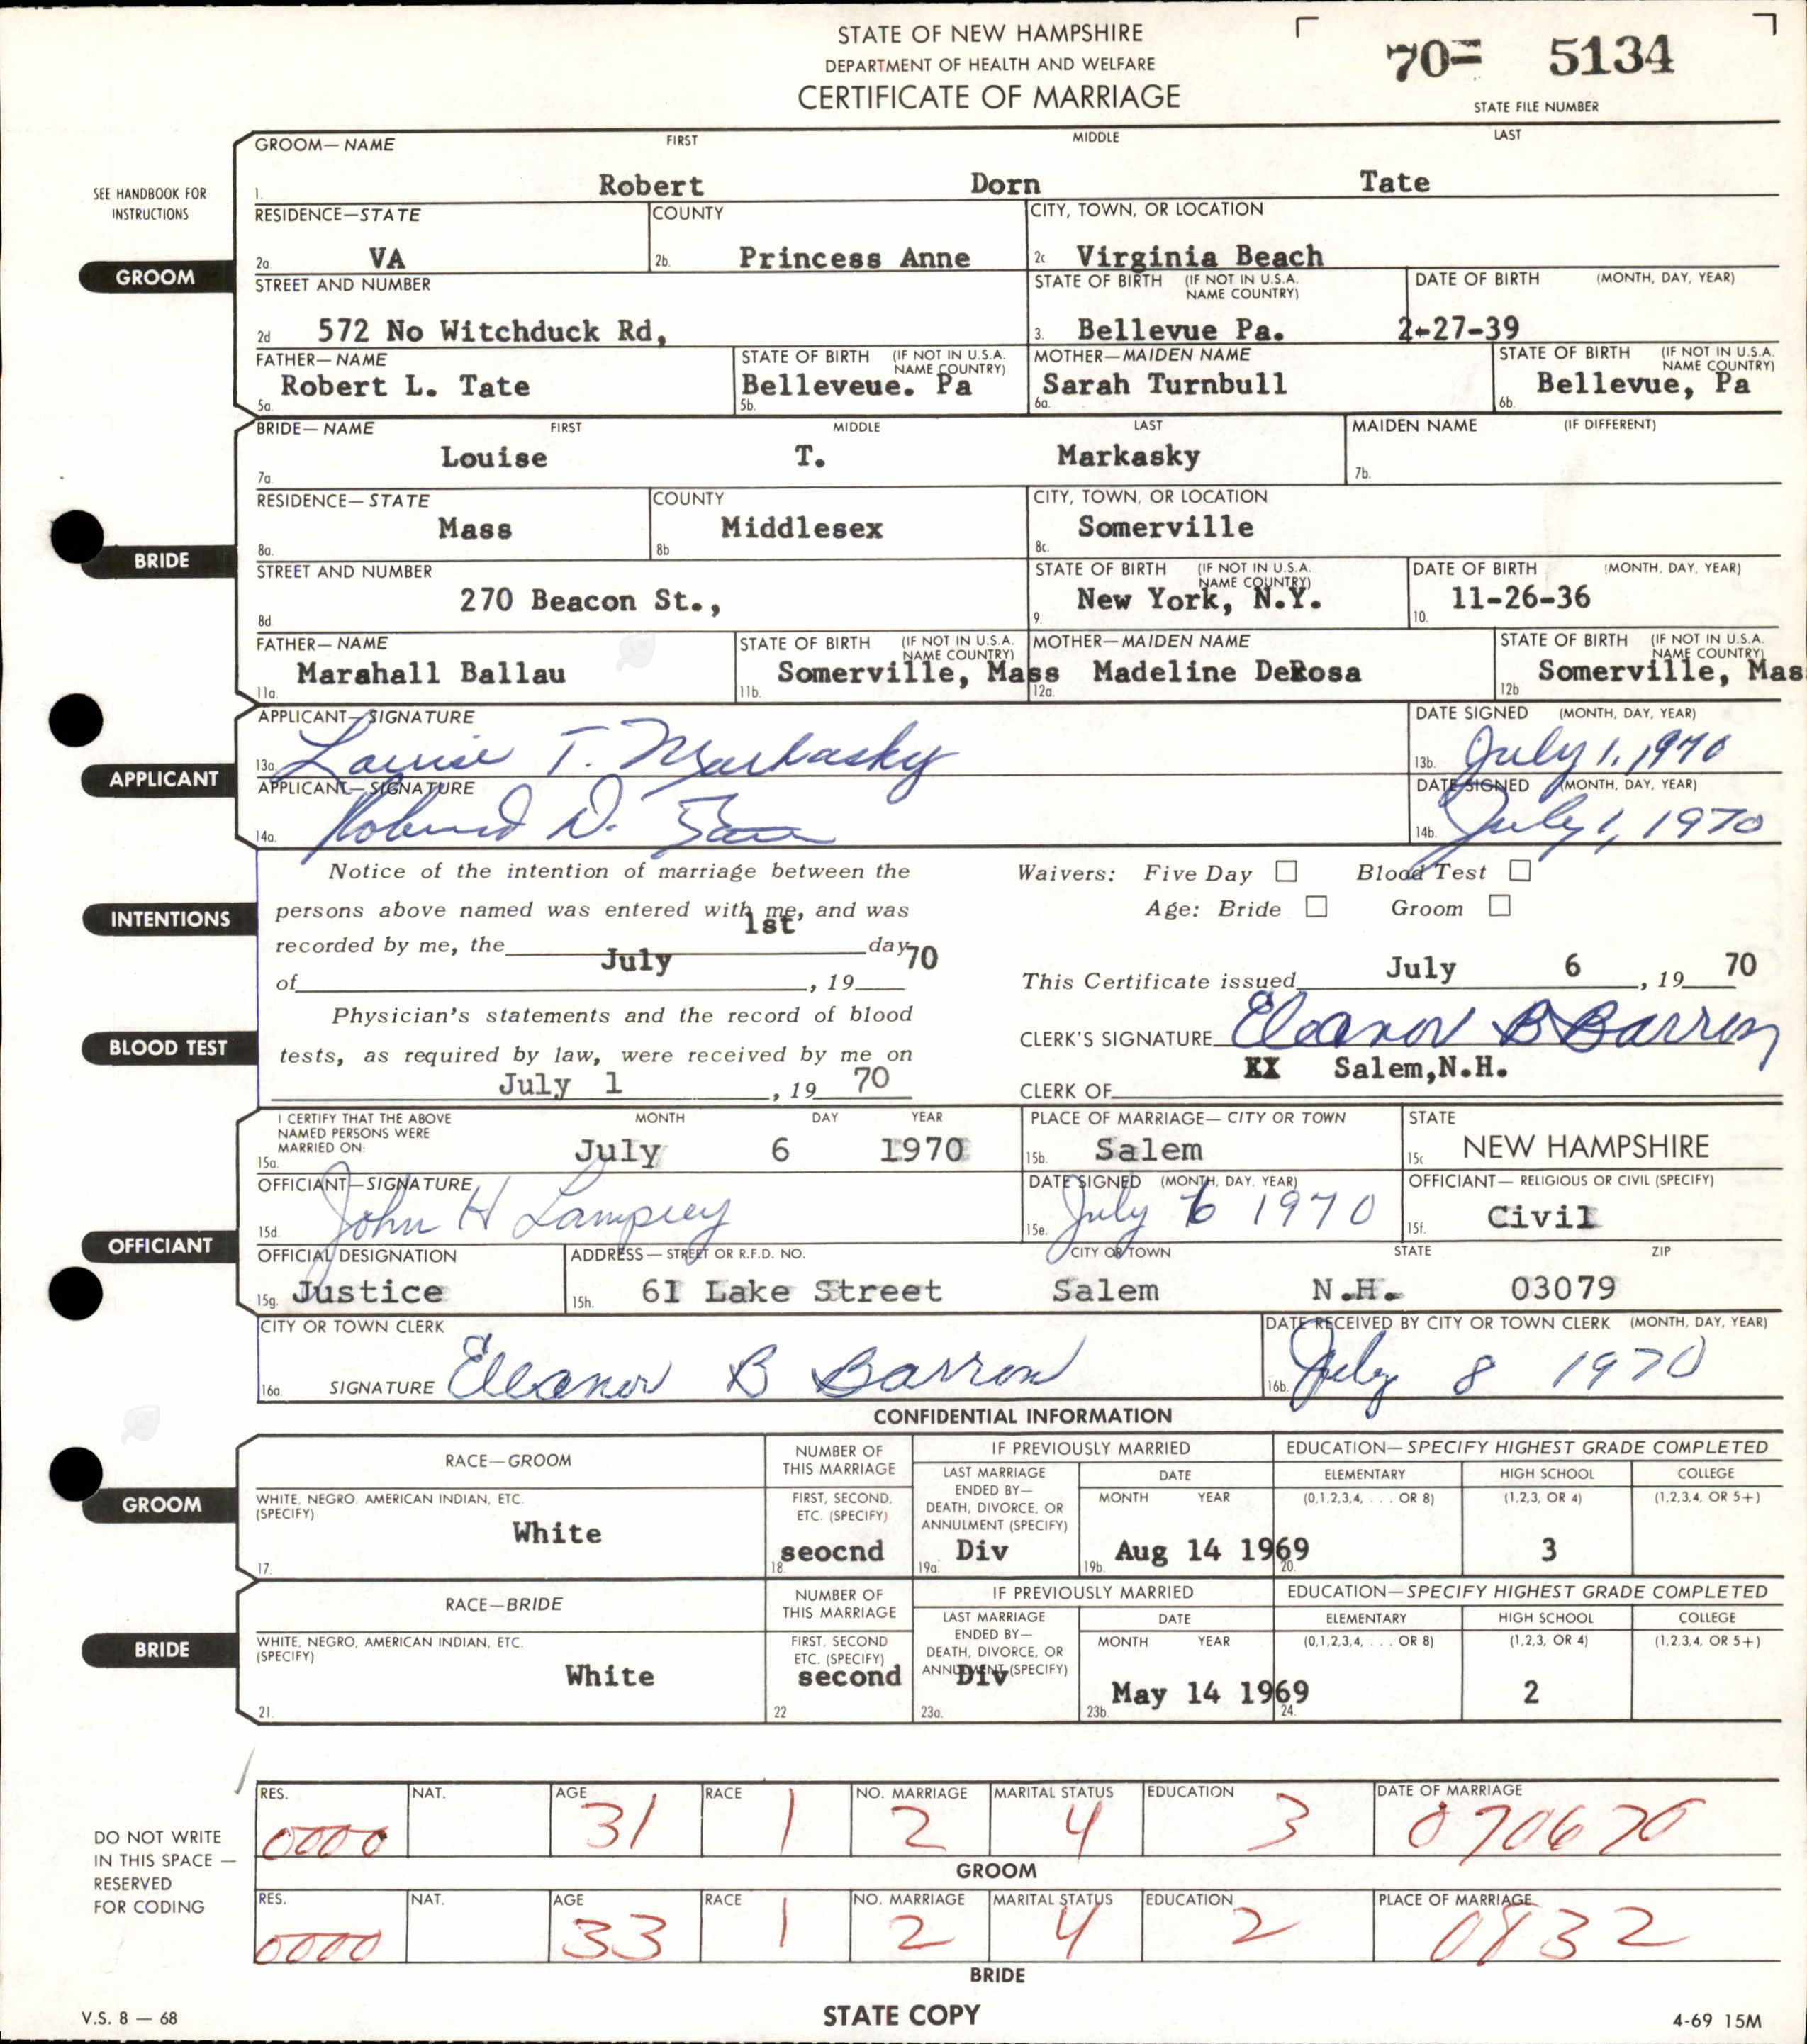 STATE OF NEW HAMPSHIRE
DEPARTMENT OF HEALTH AND WELFARE
CERTIFICATE OF MARRIAGE
70= 5134
STATE FILE NUMBER
SEE HANDBOOK FOR INSTRUCTIONS
GROOM
GROOM—NAME FIRST MIDDLE LAST
1. Robert Dorn Tate
RESIDENCE—STATE COUNTY CITY, TOWN, OR LOCATION
2a VA 2b. Princess Anne 2c Virginia Beach
STREET AND NUMBER STATE OF BIRTH (IF NOT IN U.S.A. NAME COUNTRY) DATE OF BIRTH (MONTH, DAY, YEAR)
2d 572 No Witchduck Rd, 3. Bellevue Pa. 2-27-39
FATHER—NAME STATE OF BIRTH (IF NOT IN U.S.A. NAME COUNTRY) MOTHER—MAIDEN NAME STATE OF BIRTH (IF NOT IN U.S.A. NAME COUNTRY)
5a. Robert L. Tate 5b. Belleveue. Pa 6a. Sarah Turnbull 6b. Bellevue, Pa
BRIDE
BRIDE—NAME FIRST MIDDLE LAST MAIDEN NAME (IF DIFFERENT)
7a Louise T. Markasky 7b.
RESIDENCE—STATE COUNTY CITY, TOWN, OR LOCATION
8a. Mass 8b Middlesex 8c. Somerville
STREET AND NUMBER STATE OF BIRTH (IF NOT IN U.S.A. NAME COUNTRY) DATE OF BIRTH (MONTH, DAY, YEAR)
8d 270 Beacon St., 9. New York, N.Y. 10. 11-26-36
FATHER—NAME STATE OF BIRTH (IF NOT IN U.S.A. NAME COUNTRY) MOTHER—MAIDEN NAME STATE OF BIRTH (IF NOT IN U.S.A. NAME COUNTRY)
11a. Marahall Ballau 11b. Somerville, Mass 12a. Madeline DeRosa 12b Somerville, Mas
APPLICANT
APPLICANT—SIGNATURE DATE SIGNED (MONTH, DAY, YEAR)
13a. Louise T. Markasky 13b. July 1, 1970
APPLICANT—SIGNATURE DATE SIGNED (MONTH, DAY, YEAR)
14a. Robert D. Tate 14b. July 1, 1970
INTENTIONS
Notice of the intention of marriage between the
persons above named was entered with me, and was
recorded by me, the 1st day
of July, 19 70
Waivers: Five Day ☐ Blood Test ☐
Age: Bride ☐ Groom ☐
This Certificate issued July 6, 19 70
BLOOD TEST
Physician's statements and the record of blood
tests, as required by law, were received by me on
July 1, 19 70
CLERK'S SIGNATURE Eleanor B Barron
CLERK OF XX Salem,N.H.
OFFICIANT
I CERTIFY THAT THE ABOVE NAMED PERSONS WERE MARRIED ON: MONTH DAY YEAR PLACE OF MARRIAGE—CITY OR TOWN STATE
15a. July 6 1970 15b. Salem 15c NEW HAMPSHIRE
OFFICIANT—SIGNATURE DATE SIGNED (MONTH, DAY, YEAR) OFFICIANT—RELIGIOUS OR CIVIL (SPECIFY)
15d John H Lamprey 15e. July 6 1970 15f. Civil
OFFICIAL DESIGNATION ADDRESS—STREET OR R.F.D. NO. CITY OR TOWN STATE ZIP
15g. Justice 15h. 61 Lake Street Salem N.H. 03079
CITY OR TOWN CLERK DATE RECEIVED BY CITY OR TOWN CLERK (MONTH, DAY, YEAR)
16a. SIGNATURE Eleanor B Barron 16b. July 8 1970
CONFIDENTIAL INFORMATION
GROOM
RACE—GROOM NUMBER OF THIS MARRIAGE IF PREVIOUSLY MARRIED EDUCATION—SPECIFY HIGHEST GRADE COMPLETED
WHITE, NEGRO, AMERICAN INDIAN, ETC. (SPECIFY) FIRST, SECOND, ETC. (SPECIFY) LAST MARRIAGE ENDED BY—DEATH, DIVORCE, OR ANNULMENT (SPECIFY) DATE MONTH YEAR ELEMENTARY (0,1,2,3,4, . . . OR 8) HIGH SCHOOL (1,2,3, OR 4) COLLEGE (1,2,3,4, OR 5+)
17. White 18 seocnd 19a. Div 19b. Aug 14 1969 20. 3
BRIDE
RACE—BRIDE NUMBER OF THIS MARRIAGE IF PREVIOUSLY MARRIED EDUCATION—SPECIFY HIGHEST GRADE COMPLETED
WHITE, NEGRO, AMERICAN INDIAN, ETC. (SPECIFY) FIRST, SECOND ETC. (SPECIFY) LAST MARRIAGE ENDED BY—DEATH, DIVORCE, OR ANNULMENT (SPECIFY) DATE MONTH YEAR ELEMENTARY (0,1,2,3,4, . . . OR 8) HIGH SCHOOL (1,2,3, OR 4) COLLEGE (1,2,3,4, OR 5+)
21. White 22 second 23a. Div 23b. May 14 1969 24. 2
DO NOT WRITE IN THIS SPACE — RESERVED FOR CODING
RES. NAT. AGE RACE NO. MARRIAGE MARITAL STATUS EDUCATION DATE OF MARRIAGE
0000 31 1 2 4 3 070670
GROOM
RES. NAT. AGE RACE NO. MARRIAGE MARITAL STATUS EDUCATION PLACE OF MARRIAGE
0000 33 1 2 4 2 0832
BRIDE
V.S. 8 — 68
STATE COPY
4-69 15M